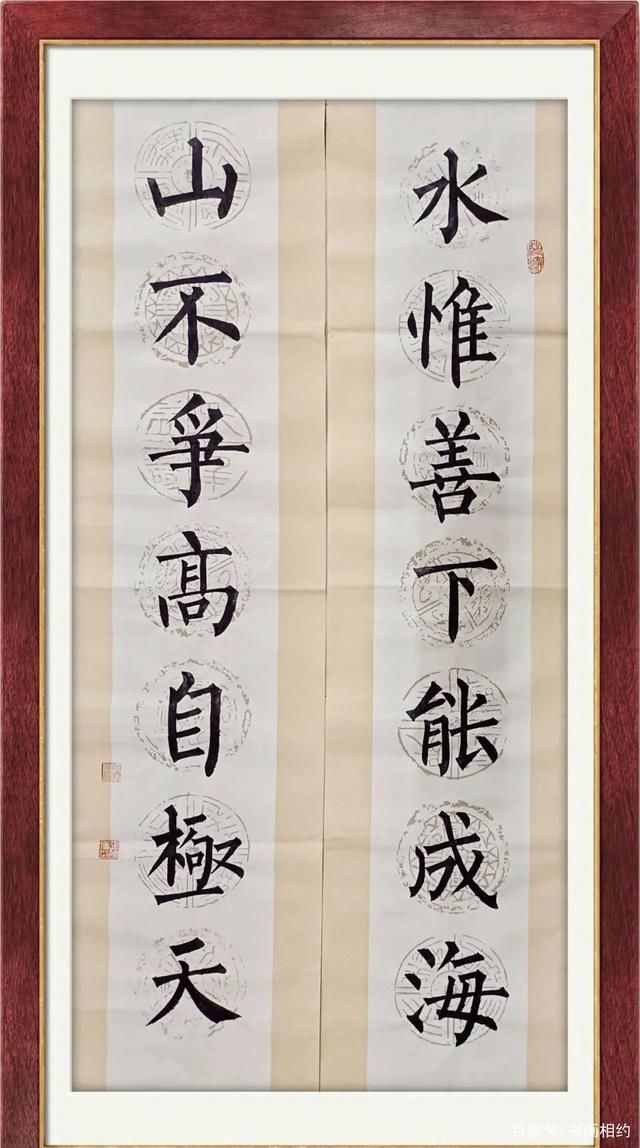 水惟善下能成海
山不爭高自極天
百家号/书画相约